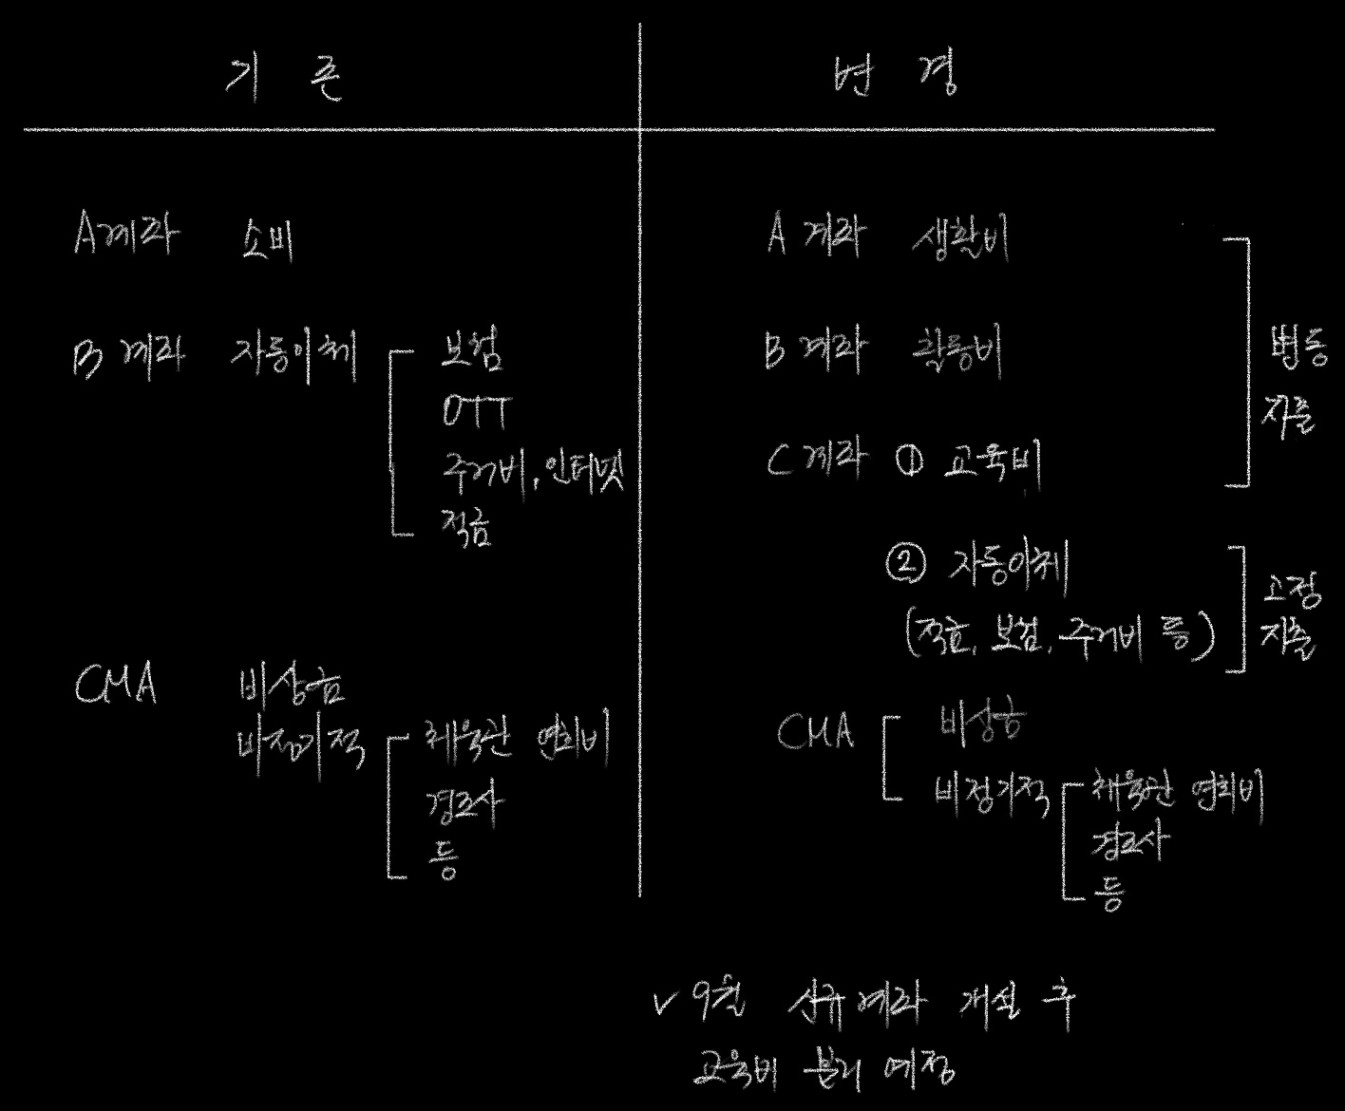 기존
변경
A계좌 소비
B 계좌 자동이체
보험
OTT
주거비, 인터넷
적금
CMA 비상금
비정기적
체육관 연회비
경조사
등
A 계좌 생활비
B 계좌 활동비
C 계좌 ① 교육비
변동
지출
② 자동이체
(적금, 보험, 주거비 등)
고정
지출
CMA
비상금
비정기적
체육관 연회비
경조사
등
✓ 9월 신규계좌 개설 후
교육비 분리 예정